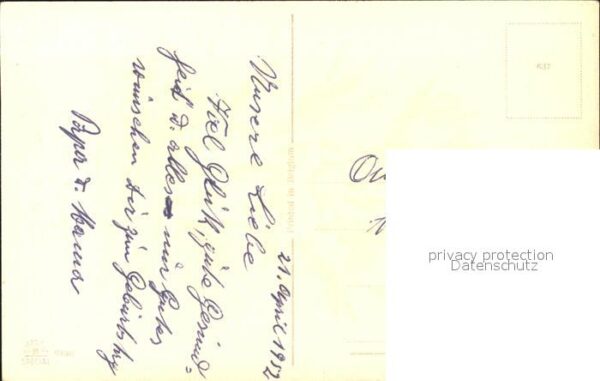 21. April 1952
Unsere Liebe
Viel Glück, gute Gesund=
heit u. alles nur Gutes
wünschen Dir zum Geburtstag
Papa u. Mama
Printed in Belgium
637
privacy protection
Datenschutz